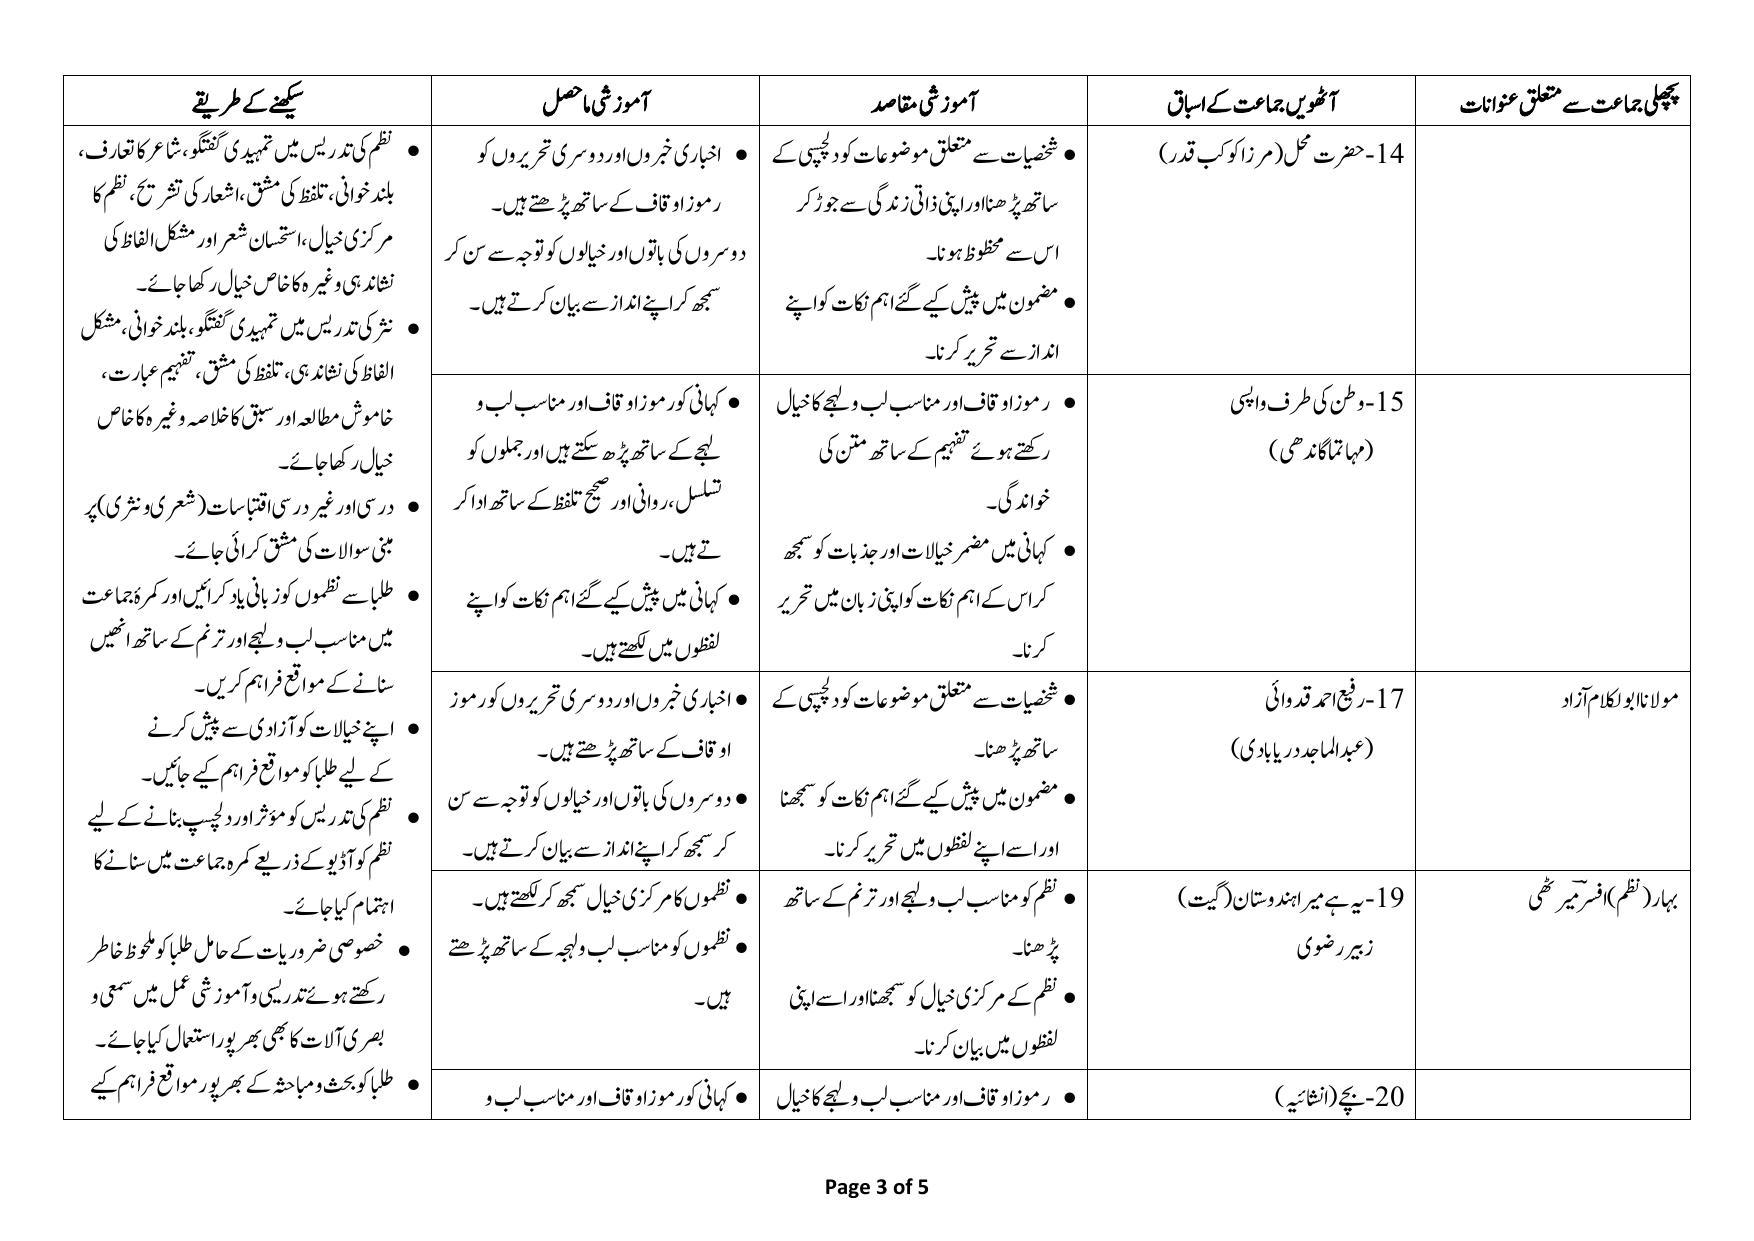 پچھلی جماعت سے متعلق عنوانات
آٹھویں جماعت کے اسباق
آموزشی مقاصد
آموزشی ماحصل
سیکھنے کے طریقے
14-حضرت محل (مرزا کوکب قدر)
● شخصیات سے متعلق موضوعات کو دلچسپی کے
ساتھ پڑھنا اور اپنی ذاتی زندگی سے جوڑ کر
اس سے محظوظ ہونا۔
● مضمون میں پیش کیے گئے اہم نکات کو اپنے
انداز سے تحریر کرنا۔
● اخباری خبروں اور دوسری تحریروں کو
رموز اوقاف کے ساتھ پڑھتے ہیں۔
دوسروں کی باتوں اور خیالوں کو توجہ سے سن کر
سمجھ کر اپنے انداز سے بیان کرتے ہیں۔
15-وطن کی طرف واپسی
(مہاتما گاندھی)
● رموز اوقاف اور مناسب لب و لہجے کا خیال
رکھتے ہوئے تفہیم کے ساتھ متن کی
خواندگی۔
● کہانی میں مضمر خیالات اور جذبات کو سمجھ
کر اس کے اہم نکات کو اپنی زبان میں تحریر
کرنا۔
● کہانی کو رموز اوقاف اور مناسب لب و
لہجے کے ساتھ پڑھ سکتے ہیں اور جملوں کو
تسلسل، روانی اور صحیح تلفظ کے ساتھ ادا کر
تے ہیں۔
● کہانی میں پیش کیے گئے اہم نکات کو اپنے
لفظوں میں لکھتے ہیں۔
مولانا ابوالکلام آزاد
17-رفیع احمد قدوائی
(عبدالماجد دریابادی)
● شخصیات سے متعلق موضوعات کو دلچسپی کے
ساتھ پڑھنا۔
● مضمون میں پیش کیے گئے اہم نکات کو سمجھنا
اور اسے اپنے لفظوں میں تحریر کرنا۔
● اخباری خبروں اور دوسری تحریروں کو رموز
اوقاف کے ساتھ پڑھتے ہیں۔
● دوسروں کی باتوں اور خیالوں کو توجہ سے سن
کر سمجھ کر اپنے انداز سے بیان کرتے ہیں۔
بہار (نظم) افسر میرٹھی
19-یہ ہے میرا ہندوستان (گیت)
زبیر رضوی
● نظم کو مناسب لب و لہجے اور ترنم کے ساتھ
پڑھنا۔
● نظم کے مرکزی خیال کو سمجھنا اور اسے اپنی
لفظوں میں بیان کرنا۔
● نظموں کا مرکزی خیال سمجھ کر لکھتے ہیں۔
● نظموں کو مناسب لب و لہجہ کے ساتھ پڑھتے
ہیں۔
20-بچے (انشائیہ)
● رموز اوقاف اور مناسب لب و لہجے کا خیال
● کہانی کو رموز اوقاف اور مناسب لب و
● نظم کی تدریس میں تمہیدی گفتگو، شاعر کا تعارف،
بلند خوانی، تلفظ کی مشق، اشعار کی تشریح، نظم کا
مرکزی خیال، استحسان شعر اور مشکل الفاظ کی
نشاندہی وغیرہ کا خاص خیال رکھا جائے۔
● نثر کی تدریس میں تمہیدی گفتگو، بلند خوانی، مشکل
الفاظ کی نشاندہی، تلفظ کی مشق، تفہیم عبارت،
خاموش مطالعہ اور سبق کا خلاصہ وغیرہ کا خاص
خیال رکھا جائے۔
● درسی اور غیر درسی اقتباسات (شعری و نثری) پر
مبنی سوالات کی مشق کرائی جائے۔
● طلبا سے نظموں کو زبانی یاد کرائیں اور کمرۂ جماعت
میں مناسب لب و لہجے اور ترنم کے ساتھ انھیں
سنانے کے مواقع فراہم کریں۔
● اپنے خیالات کو آزادی سے پیش کرنے
کے لیے طلبا کو مواقع فراہم کیے جائیں۔
● نظم کی تدریس کو مؤثر اور دلچسپ بنانے کے لیے
نظم کو آڈیو کے ذریعے کمرہ جماعت میں سنانے کا
اہتمام کیا جائے۔
● خصوصی ضروریات کے حامل طلبا کو ملحوظ خاطر
رکھتے ہوئے تدریسی و آموزشی عمل میں سمعی و
بصری آلات کا بھی بھرپور استعمال کیا جائے۔
● طلبا کو بحث و مباحثہ کے بھرپور مواقع فراہم کیے
Page 3 of 5